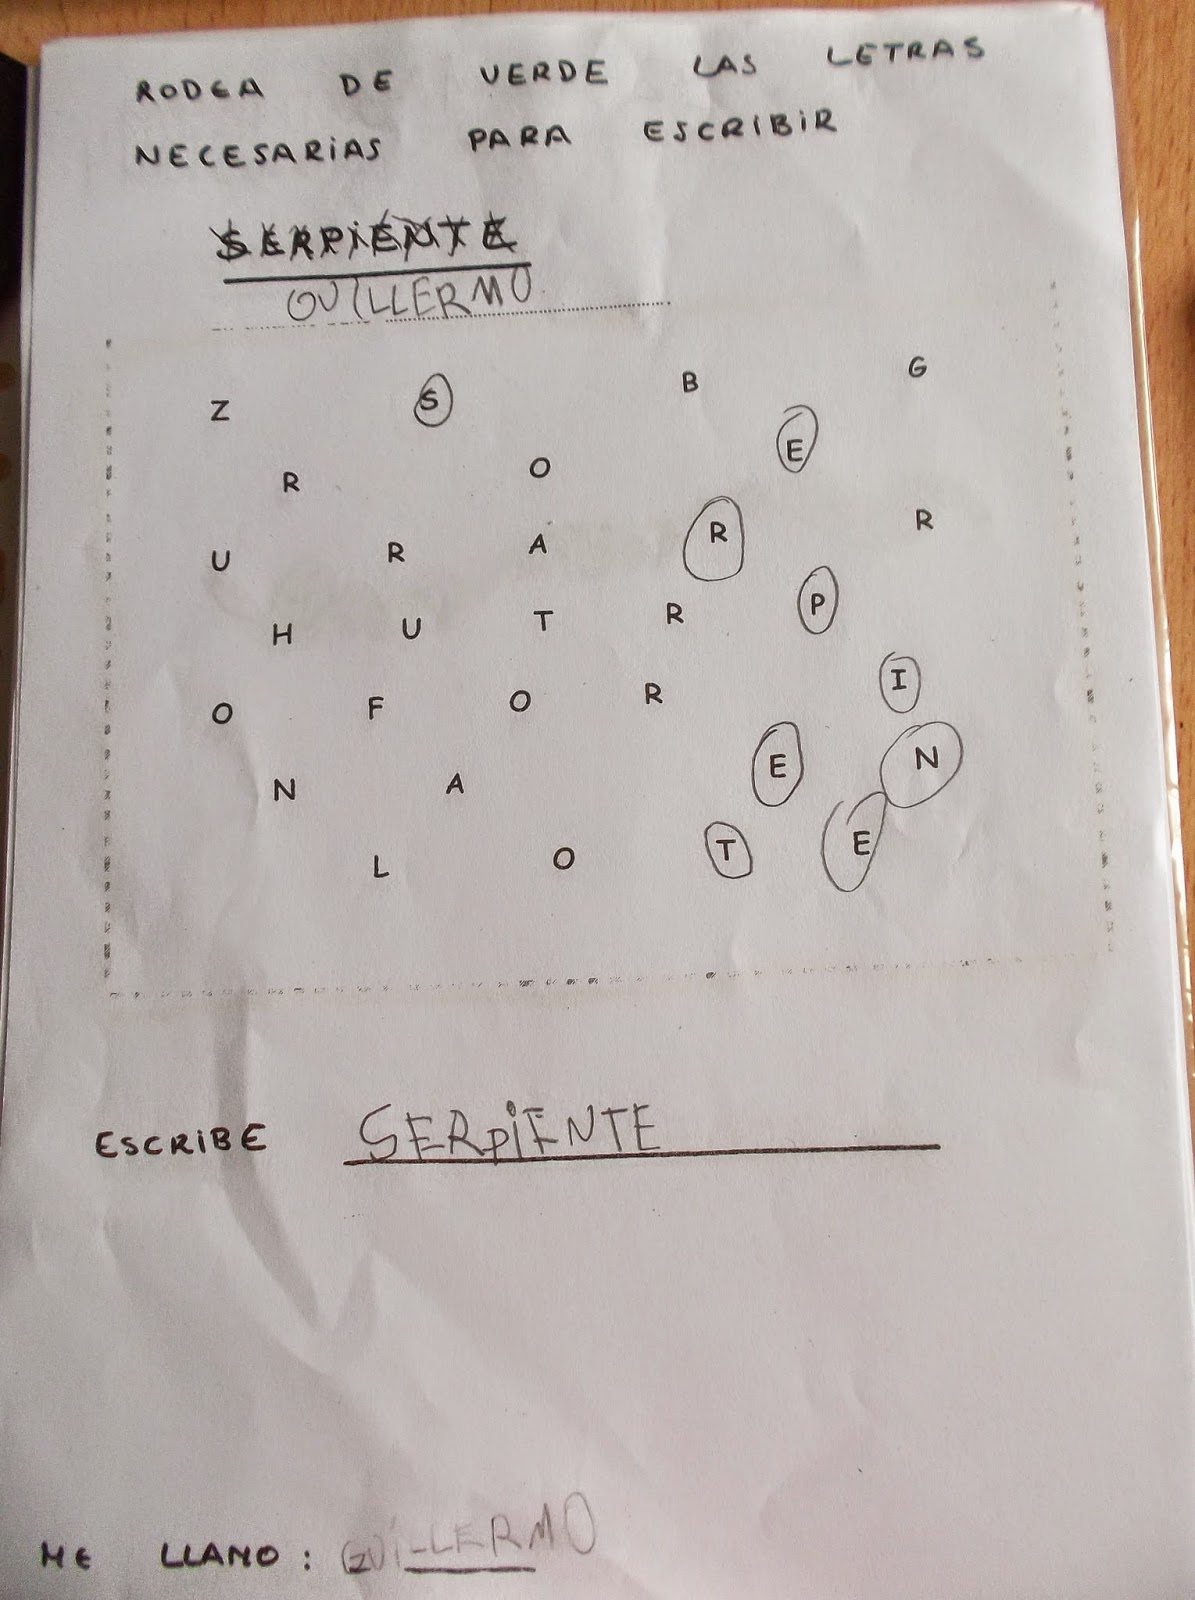 RODEA DE VERDE LAS LETRAS
NECESARIAS PARA ESCRIBIR
SERPIENTE
GUILLERMO
Z S B G
R O E
U R A R R
H U T R P
O F O R I
N A E N
L O T E
ESCRIBE SERPIENTE
ME LLAMO: GUILLERMO